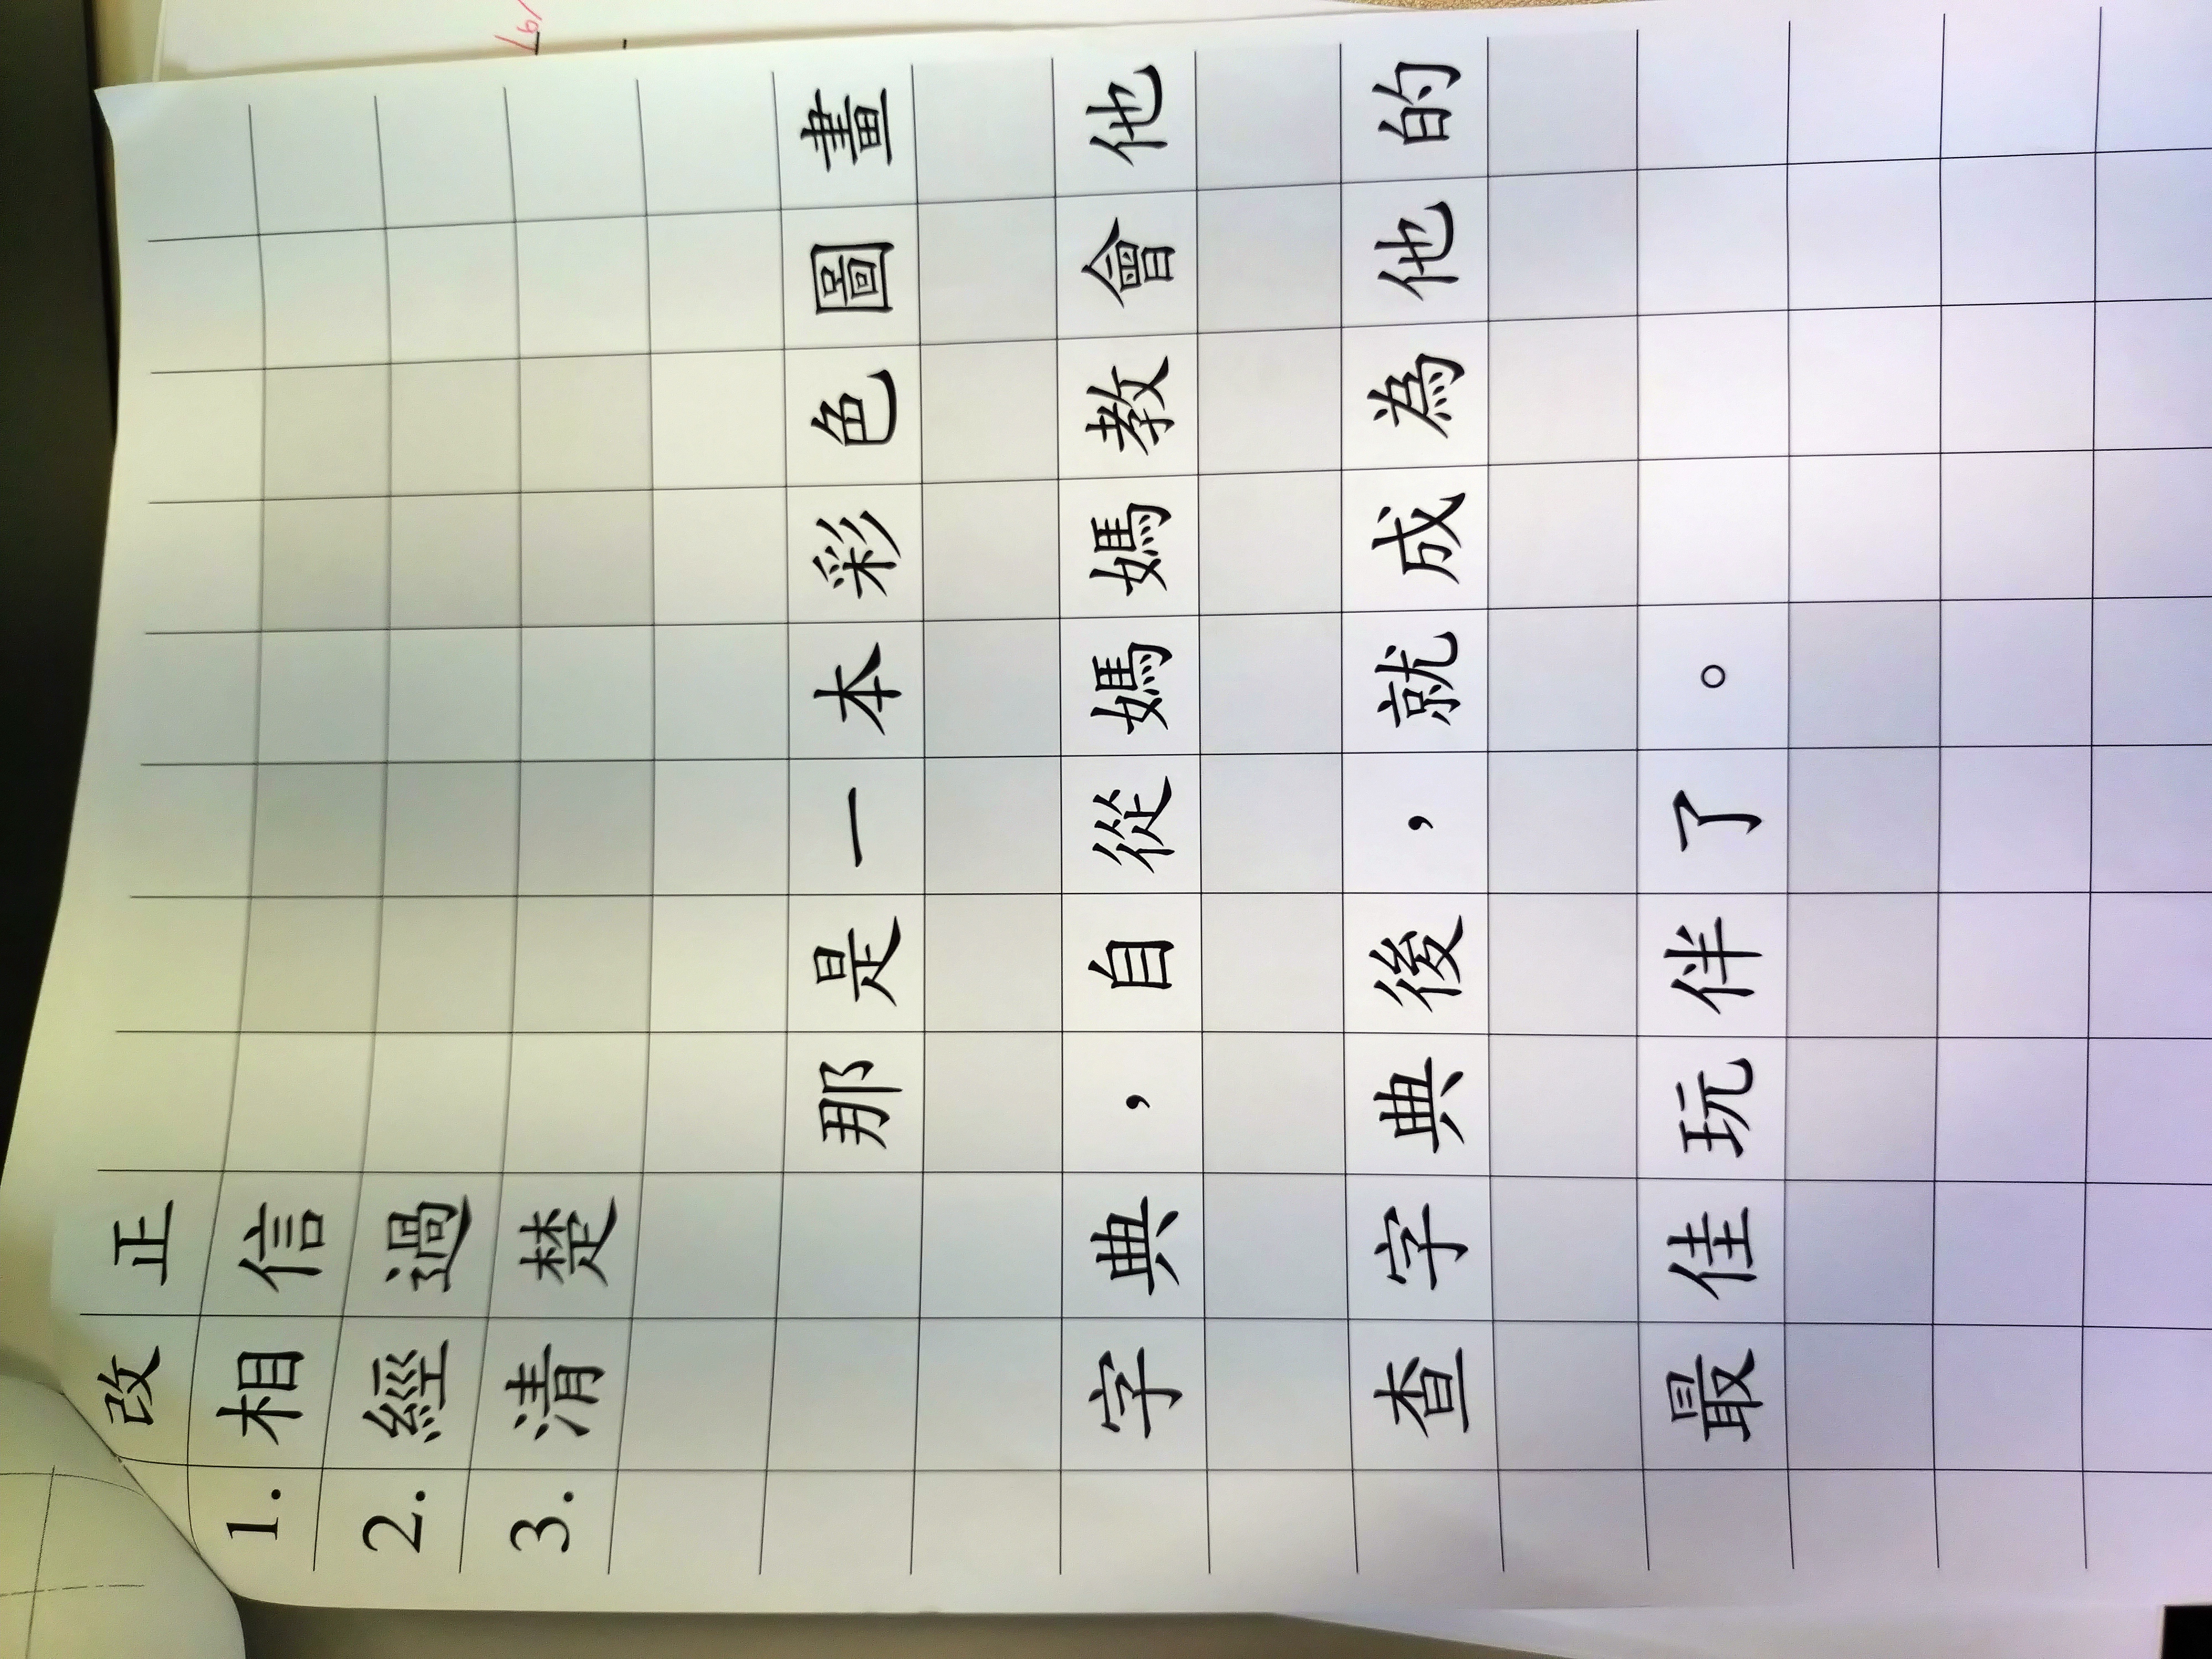 改正
1.相信
2.經過
3.清楚
那是一本彩色圖畫
字典，自從媽媽教會他
查字典後，就成為他的
最佳玩伴了。